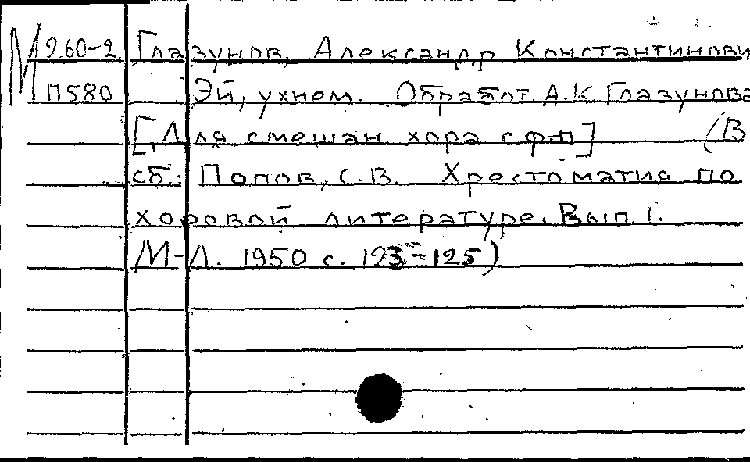 М 9.60-2 Глазунов, Александр Константинови
П580 Эй, ухнем. Обработ А.К Глазунова
[Для смешан хора с ф-п] (В
сб: Попов, С.В. Хрестоматия по
хоровой литературе. Вып 1.
М-Л. 1950 с. 123-125)